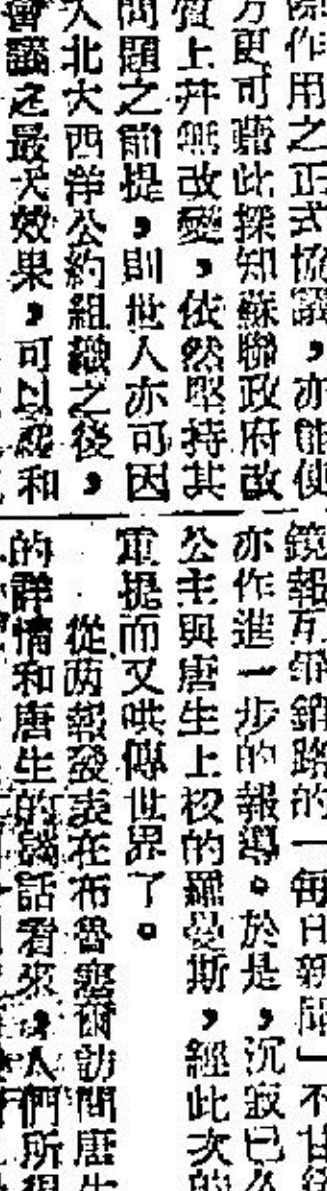 院作用之正式協議，亦能使
方更可藉此探知蘇聯政府改
質上幷無改變，依然堅持其
問題之前提，則世人亦可因
入北大西洋公約組織之後，
會議之最大效果，可以緩和
鏡報互爭銷路的「每日新聞」不甘
亦作進一步的報導。於是，沉寂已久
公主與唐生上校的羅曼斯，經此次的
重提而又哄傳世界了。
從两報發表在布魯塞爾訪問唐生
的詳情和唐生的談話看來，人們所得